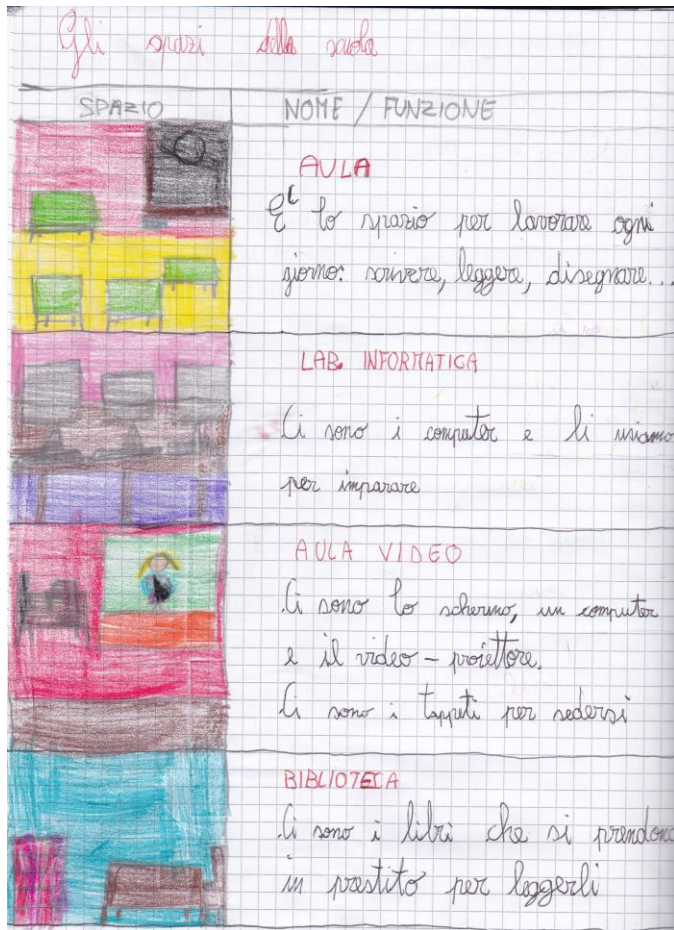 Gli spazi della scuola
SPAZIO
NOME / FUNZIONE
AULA
E' lo spazio per lavorare ogni
giorno: scrivere, leggere, disegnare...
LAB. INFORMATICA
Ci sono i computer e li usiamo
per imparare
AULA VIDEO
Ci sono lo schermo, un computer
e il video - proiettore.
Ci sono i tappeti per sedersi
BIBLIOTECA
Ci sono i libri che si prendono
in prestito per leggerli